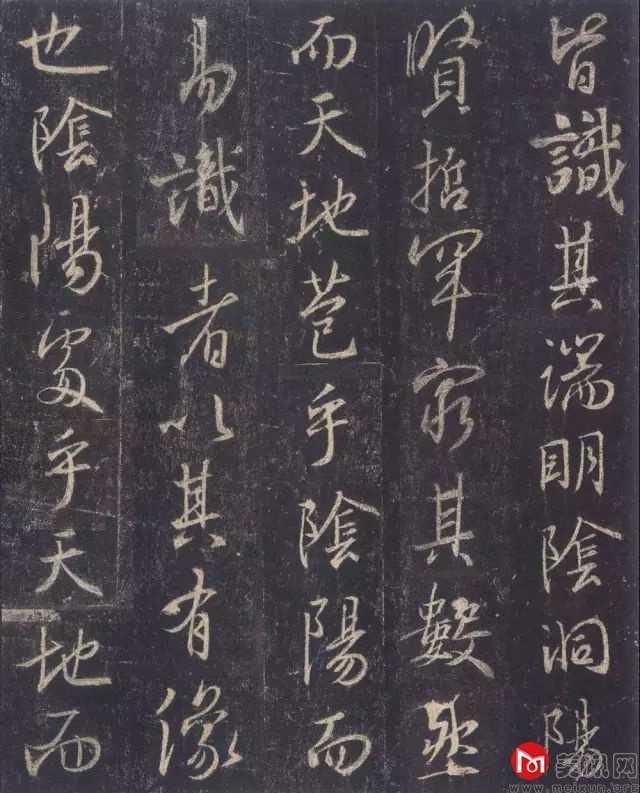 皆識其端明陰洞陽
賢哲罕窮其數然
而天地苞乎陰陽而
易識者以其有像
也陰陽處乎天地而
美讯网
www.meixun.org